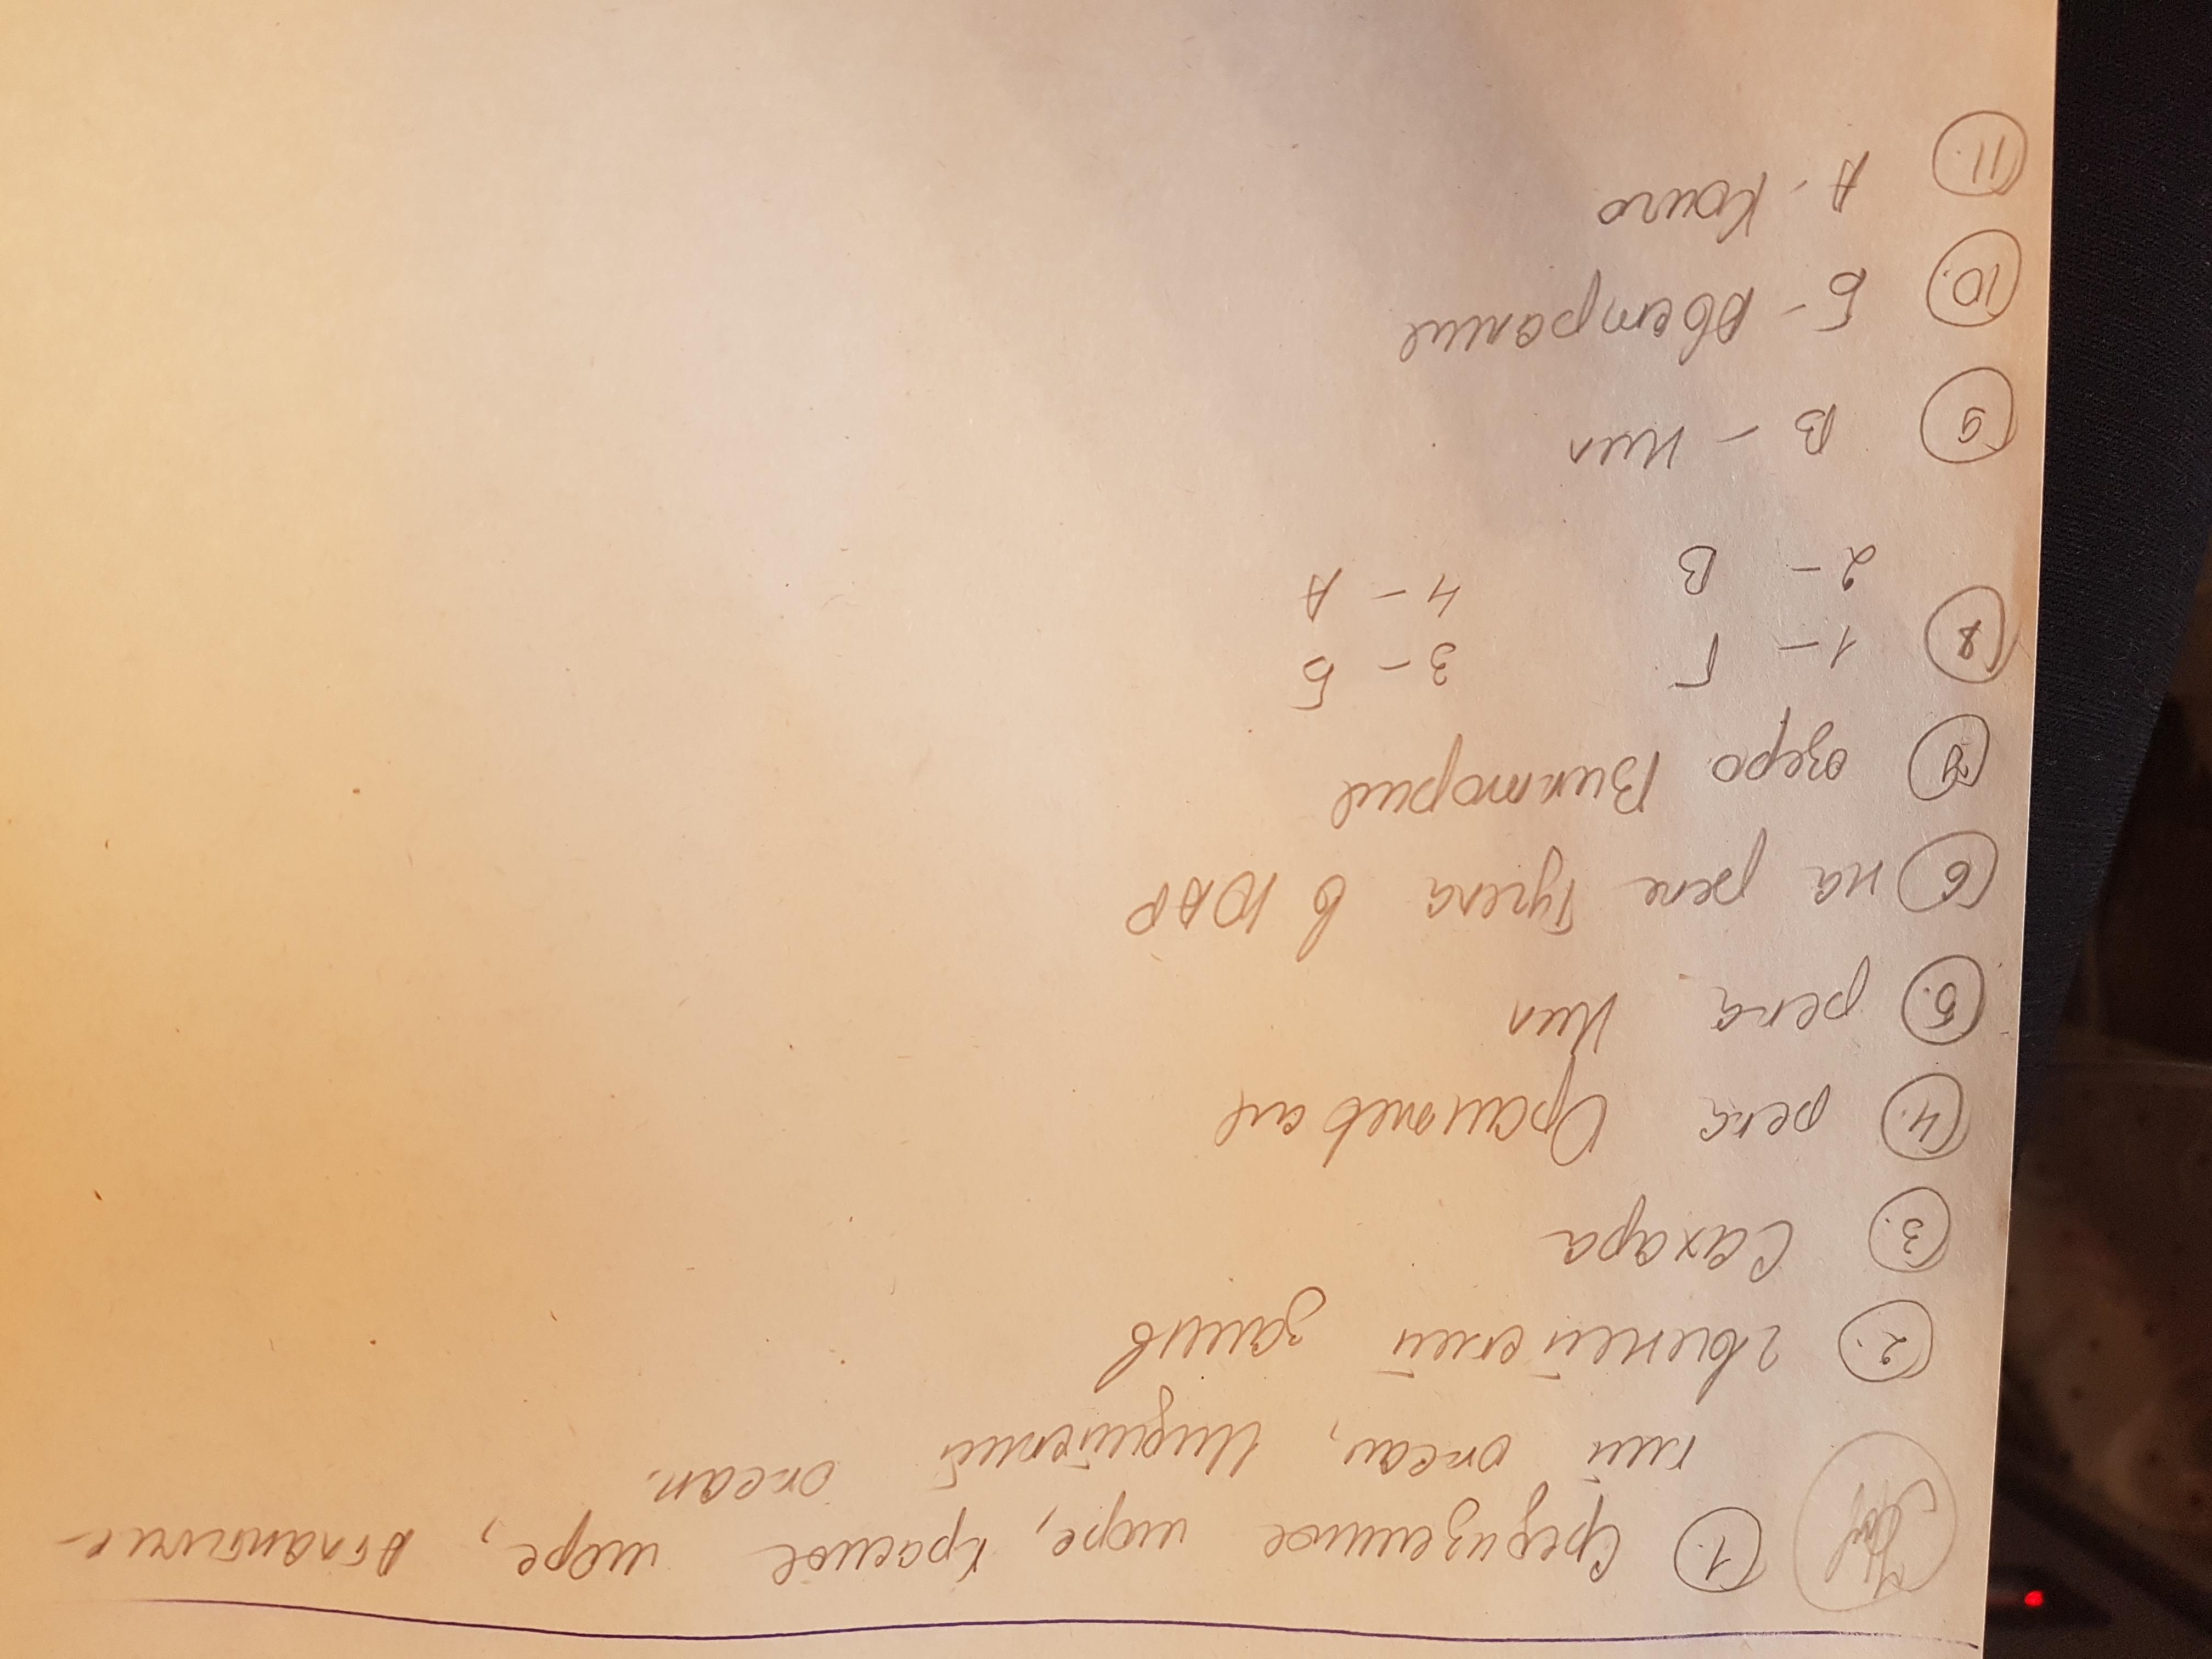 1. Средиземное море, Красное море, Атлантичес-
кий океан, Индийский океан.
2. Гвинейский залив
3. Сахара
4. река Оранжевая
5. река Нил
6 на реке Тугела в ЮАР
7 озеро Виктория
8 1 - Г 3 - Б
2 - В 4 - А
9 В - Нил
10. Б - Австралия
11. А - Конго